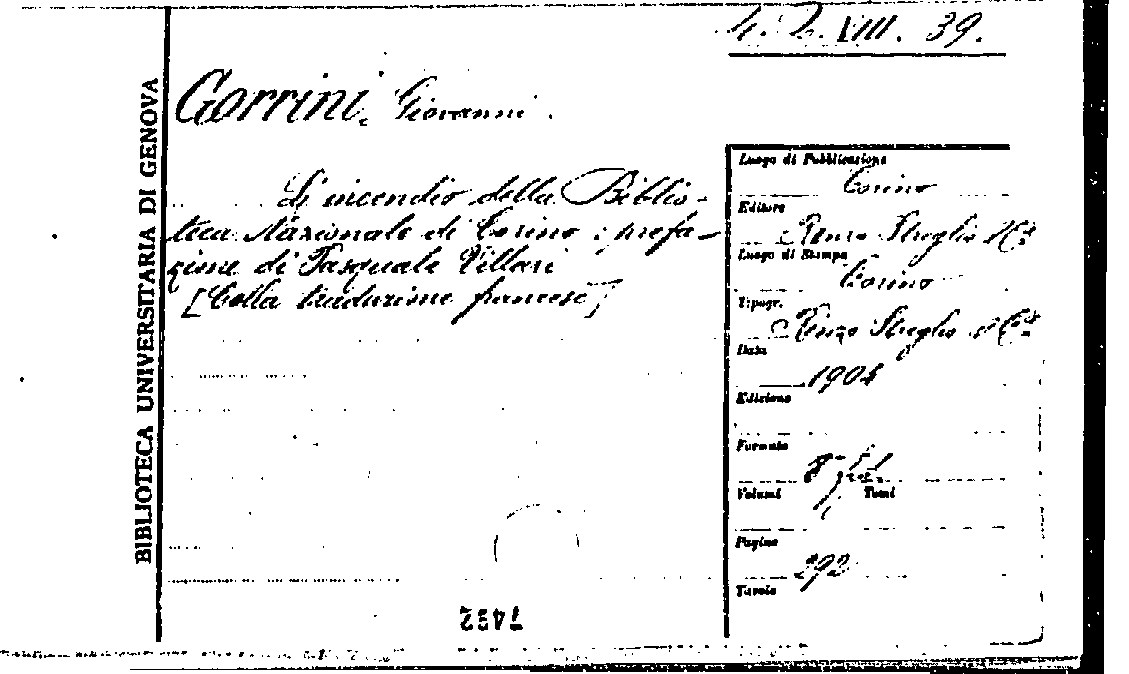 4. Z. VIII. 39.
BIBLIOTECA UNIVERSITARIA DI GENOVA
Gorrini, Giovanni.
L'incendio della Biblio-
teca Nazionale di Torino : prefa-
zione di Pasquale Villari
[Colla traduzione francese]
Luogo di Pubblicazione
Torino
Editore
Renzo Streglio & C.
Luogo di Stampa
Torino
Tipogr.
Renzo Streglio & C.
Data
1904
Edizione
Formato
8°
Volumi Tomi
Pagine
292
Tavole
7432